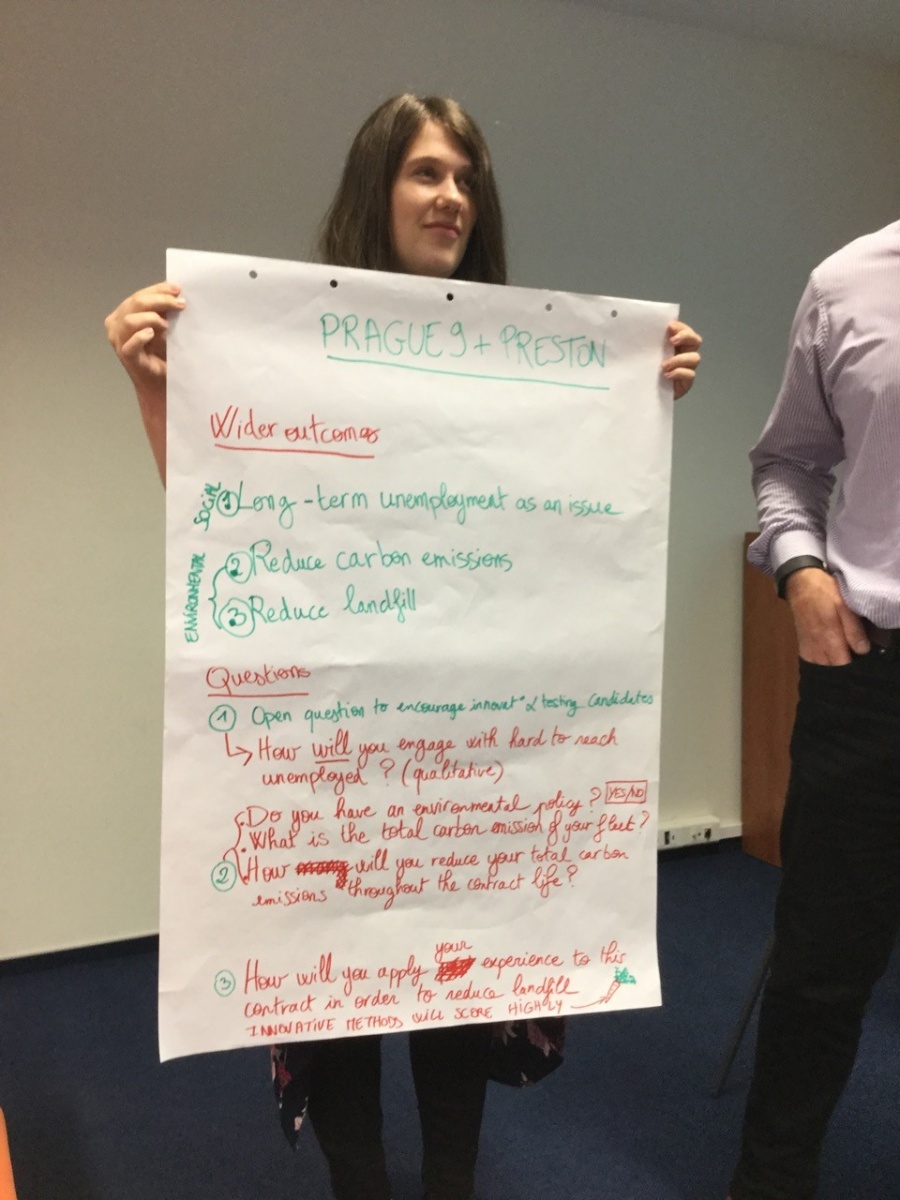 PRAGUE 9 + PRESTON
Wider outcomes
SOCIAL
① Long-term unemployment as an issue
ENVIRONMENTAL
② Reduce carbon emissions
③ Reduce landfill
Questions
① Open question to encourage innovat° & testing candidates
↳ How will you engage with hard to reach
unemployed? (qualitative)
. Do you have an environmental policy? YES/NO
. What is the total carbon emission of your fleet?
② How will you reduce your total carbon
emissions throughout the contract life?
your
③ How will you apply experience to this
contract in order to reduce landfill
INNOVATIVE METHODS WILL SCORE HIGHLY